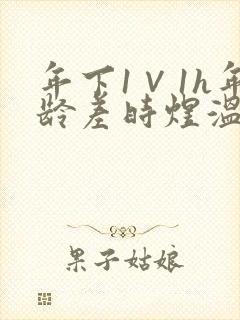 年下1V1h年
龄差时煜温
果子姑娘